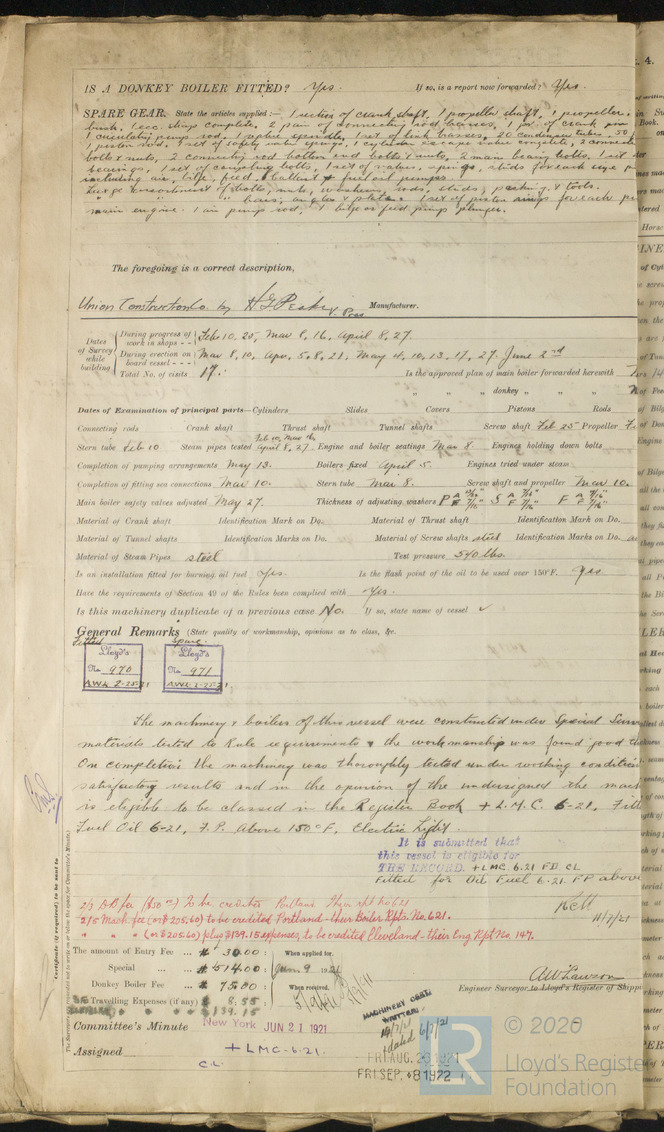 IS A DONKEY BOILER FITTED? Yes. If so, is a report now forwarded? Yes.
SPARE GEAR. State the articles supplied:— 1 section of crank shaft, 1 propeller shaft, 1 propeller,
bush, 1 ecc. strap complete, 2 pair of connecting rod brasses, 1 set of crank pin
1 circulating pump rod, 1 valve spindle, 1 set of link brasses, 20 condenser tubes, 50
1 piston rod, 1 set of safety valve springs, 1 cylinder escape valve complete, 2 connecting
bolts & nuts, 2 connecting rod bottom end bolts & nuts, 2 main bearing bolts, 1 set
bearings, 1 set of coupling bolts, 1 set of valves, springs, studs for each size
including air, bilge, feed, ballast & fuel oil pumps.
Large assortment of bolts, nuts, washers, rods, studs, packing, & tools.
" " " bars, angles & plates. 1 set of piston rings for each
main engine. 1 air pump rod, 1 bilge or feed pump plunger.
The foregoing is a correct description,
Union Construction Co. by H G Peake V. Pres Manufacturer.
Dates of Survey while building
During progress of work in shops - - Feb 10, 25, Mar 8, 16, April 8, 27.
During erection on board vessel - - - Mar 8, 10, Apr. 5, 8, 21, May 4, 10, 13, 17, 27. June 2nd
Total No. of visits 17. Is the approved plan of main boiler forwarded herewith
" " " donkey " " "
Dates of Examination of principal parts—Cylinders Slides Covers Pistons Rods
Connecting rods Crank shaft Thrust shaft Tunnel shafts Screw shaft Feb 25 Propeller
Stern tube Feb 10 Steam pipes tested Feb 10, Mar 16, April 8, 27. Engine and boiler seatings Mar 8 Engines holding down bolts
Completion of pumping arrangements May 13. Boilers fixed April 5. Engines tried under steam
Completion of fitting sea connections Mar 10. Stern tube Mar 8. Screw shaft and propeller Mar 10.
Main boiler safety valves adjusted May 27. Thickness of adjusting washers
Material of Crank shaft Identification Mark on Do. Material of Thrust shaft Identification Mark on Do.
Material of Tunnel shafts Identification Marks on Do. Material of Screw shafts steel Identification Marks on Do.
Material of Steam Pipes steel Test pressure 540 lbs.
Is an installation fitted for burning oil fuel Yes. Is the flash point of the oil to be used over 150°F. Yes
Have the requirements of Section 49 of the Rules been complied with Yes.
Is this machinery duplicate of a previous case No. If so, state name of vessel ✓
General Remarks (State quality of workmanship, opinions as to class, &c.
Fitted Spare
Lloyd's No 970 A.W.L. 2-25-21
Lloyd's No 971 A.W.L. 2-25-21
The machinery & boilers of this vessel were constructed under Special
materials tested to Rule requirements & the workmanship was found good
On completion the machinery was thoroughly tested under working conditions
satisfactory results and in the opinion of the undersigned the
is eligible to be classed in the Register Book + L.M.C. 6-21,
Fuel Oil 6-21, F.P. Above 150°F, Electric Light.
It is submitted that
this vessel is eligible for
THE RECORD. + LMC 6.21 FD CL
Fitted for Oil Fuel 6.21 FP above
2/5 Mach. fee (or $205.60) to be credited Portland - their Boiler Rpts. No. 621.
" " (or $205.60) plus $139.15 expenses, to be credited Cleveland - their Eng Rpt No. 147.
The amount of Entry Fee ... $ 30.00 : When applied for,
Special ... $ 514.00 : Jun. 9 1921
Donkey Boiler Fee ... $ 75.00 : When received,
Travelling Expenses (if any) $ 8.55
$ 139.15
A W Lawson
Engineer Surveyor to Lloyd's Register of
Committee's Minute New York JUN 21 1921
Assigned + LMC-6.21.
C.L.
MACHINERY CERT. WRITTEN
FRI. AUG. 26 1921
FRI. SEP. 8 1922
Certificate (if required) to be sent to
© 2020
Lloyd's Register
Foundation